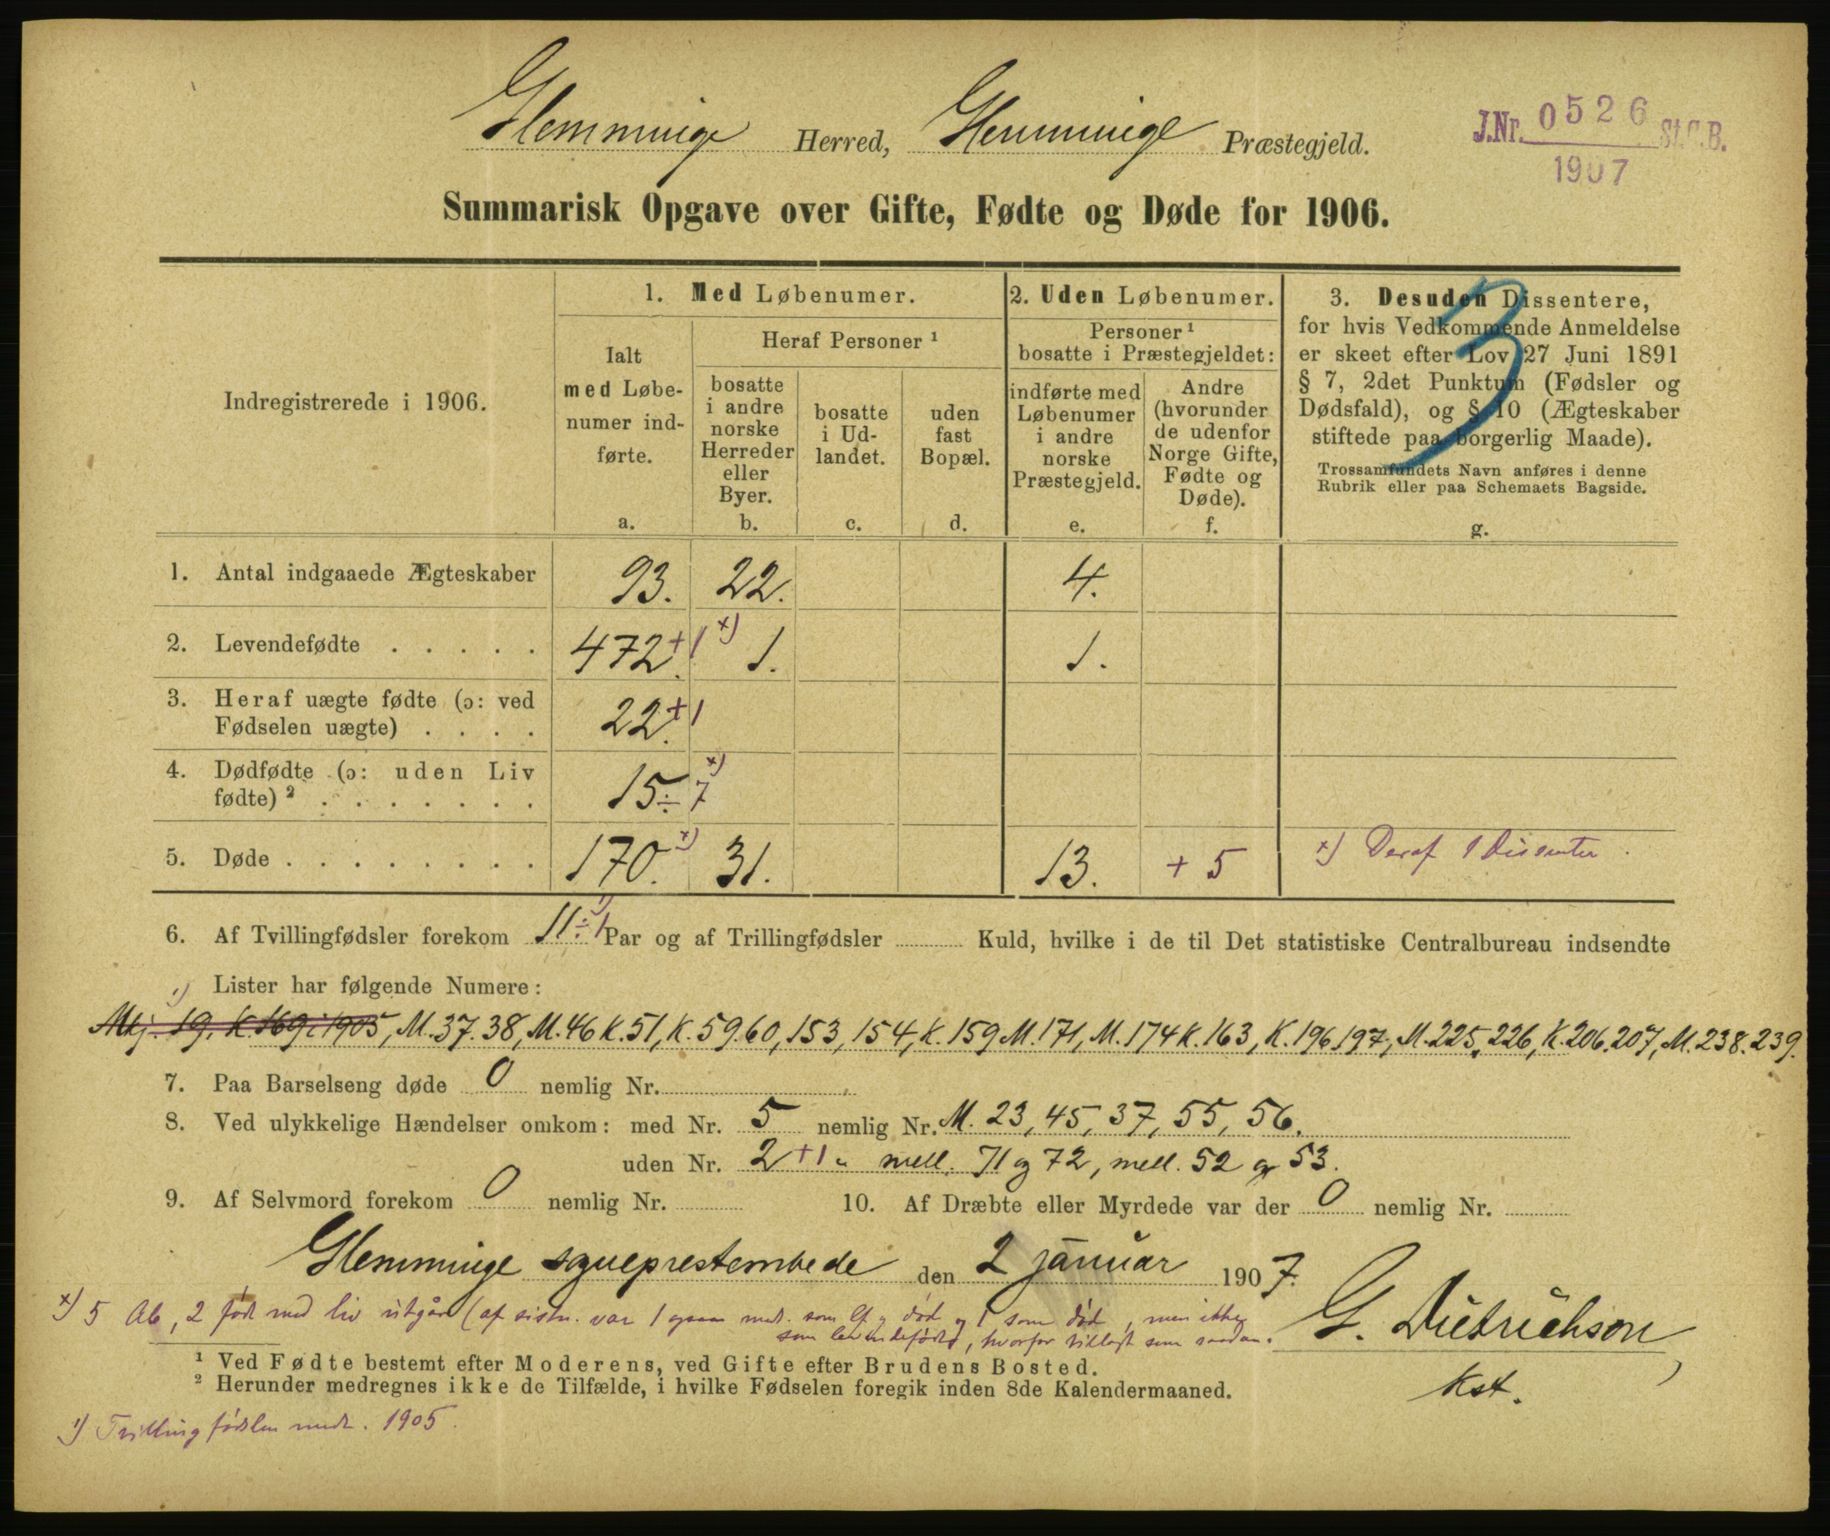 Glemminge Herred, Glemminge Præstegjeld.
J.Nr. 0526 St.C.B.
1907
Summarisk Opgave over Gifte, Fødte og Døde for 1906.
Indregistrerede i 1906.
1. Med Løbenumer.
Ialt
med Løbe-
numer ind-
førte.
a.
Heraf Personer ¹
bosatte
i andre
norske
Herreder
eller
Byer.
b.
bosatte
i Ud-
landet.
c.
uden
fast
Bopæl.
d.
2. Uden Løbenumer.
Personer ¹
bosatte i Præstegjeldet:
indførte med
Løbenumer
i andre
norske
Præstegjeld.
e.
Andre
(hvorunder
de udenfor
Norge Gifte,
Fødte og
Døde).
f.
3. Desuden Dissentere,
for hvis Vedkommende Anmeldelse
er skeet efter Lov 27 Juni 1891
§ 7, 2det Punktum (Fødsler og
Dødsfald), og § 10 (Ægteskaber
stiftede paa borgerlig Maade).
Trossamfundets Navn anføres i denne
Rubrik eller paa Schemaets Bagside.
g.
3
1. Antal indgaaede Ægteskaber 93. 22. 4.
2. Levendefødte . . . . . 472. +1 x) 1. 1.
3. Heraf uægte fødte (ɔ: ved
Fødselen uægte) . . . . 22. +1
4. Dødfødte (ɔ: uden Liv
fødte) ² . . . . . . . 15 ÷ 7 x)
5. Døde . . . . . . . . 170. x) 31. 13. + 5 x) Deraf 1 Dissenter.
6. Af Tvillingfødsler forekom 11 ÷ 1 ¹) Par og af Trillingfødsler Kuld, hvilke i de til Det statistiske Centralbureau indsendte
¹) Lister har følgende Numere:
Mkj. 19, K. 169 i 1905, M. 37. 38, M. 46 K. 51, K. 59.60, 153, 154, K. 159 M. 171, M. 174 K. 163, K. 196 197, M. 225, 226, K. 206. 207, M. 238. 239.
7. Paa Barselseng døde 0 nemlig Nr.
8. Ved ulykkelige Hændelser omkom: med Nr. 5 nemlig Nr. M. 23, 45, 37, 55, 56.
uden Nr. 2 +1 " mell. 71 og 72, mell. 52 og 53.
9. Af Selvmord forekom 0 nemlig Nr. 10. Af Dræbte eller Myrdede var der 0 nemlig Nr.
Glemminge sogneprestembede den 2 januar 1907.
G. Dietrichson
kst.
x) 5 Ab, 2 født med liv utgår (af sistn. var 1 ogsaa medt. som lf og død og 1 som død, men ikke
som levendefødt, hvorfor tillagt som saadan.
¹ Ved Fødte bestemt efter Moderens, ved Gifte efter Brudens Bosted.
² Herunder medregnes ikke de Tilfælde, i hvilke Fødselen foregik inden 8de Kalendermaaned.
¹) Tvillingfødslen medt. 1905.